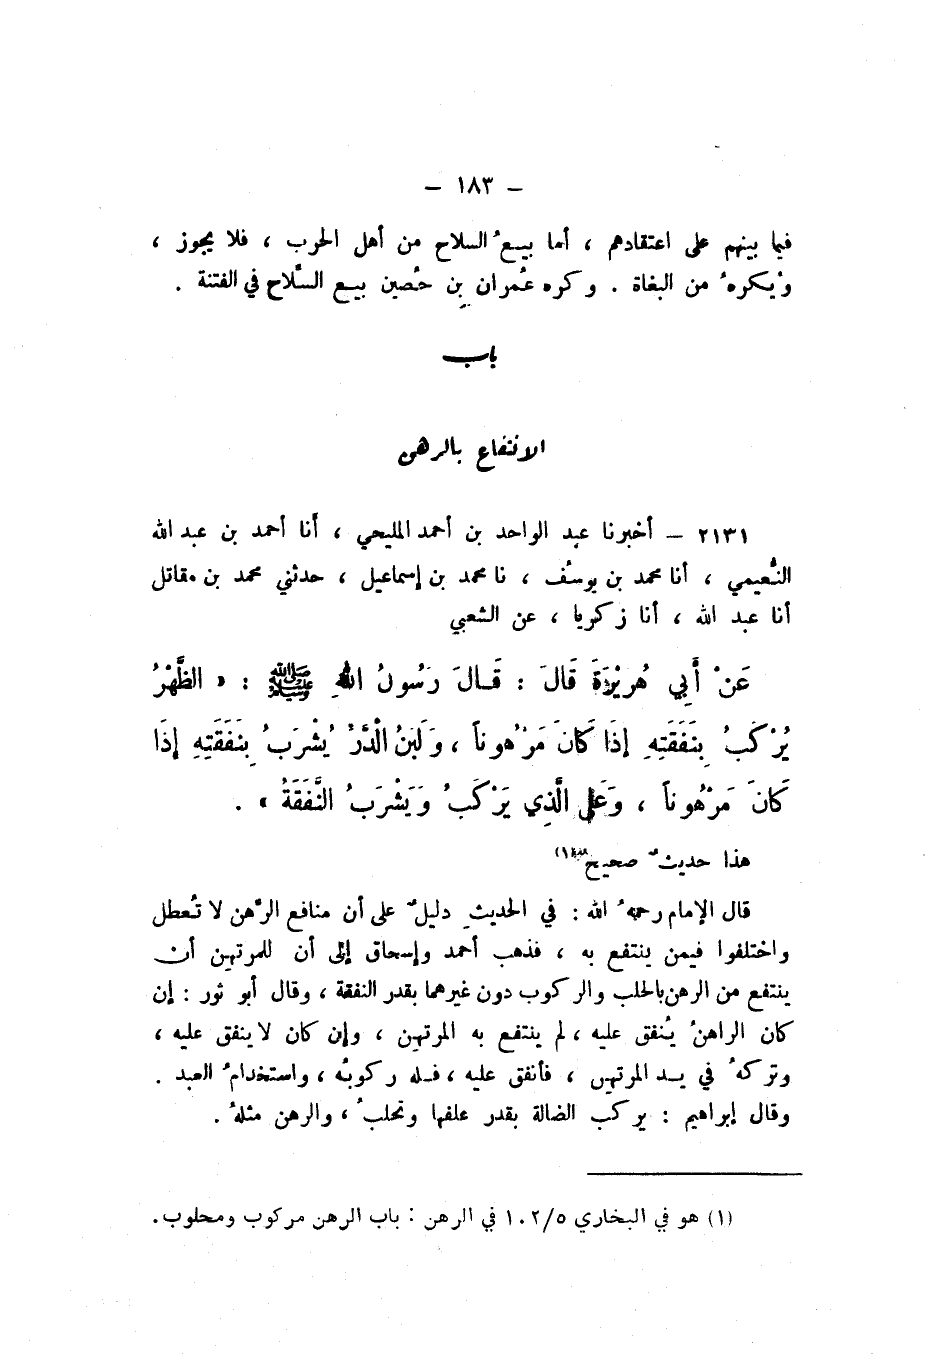 – ١٨٣ –
فيما بينهم على اعتقادهم ، أما بيعُ السلاح من أهل الحرب ، فلا يجوز ،
ويُكرهُ من البغاة . وكره عُمران بن حُصين بيع السِّلاح في الفتنة .
باب
الانتفاع بالرهن
٢١٣١ – أخبرنا عبد الواحد بن أحمد المليحي ، أنا أحمد بن عبد الله
النُّعيمي ، أنا محمد بن يوسُف ، نا محمد بن إسماعيل ، حدثني محمد بن مقاتل
أنا عبد الله ، أنا زكريا ، عن الشعبي
عَنْ أَبِي هُرَيْرَةَ قَالَ : قَالَ رَسُولُ اللهِ ﷺ : « الظَّهْرُ
يُرْكَبُ بِنَفَقَتِهِ إذَا كَانَ مَرْهُوناً ، وَلَبَنُ الْدَّرِّ يُشْرَبُ بِنَفَقَتِهِ إذَا
كَانَ مَرْهُوناً ، وَعَلى الَّذِي يَرْكَبُ وَيَشْرَبُ النَّفَقَةُ » .
هذا حديثٌ صحيحٌ(١)
قال الإمام رحمهُ الله : في الحديثِ دليلٌ على أن منافع الرَّهن لا تُعطل
واختلفوا فيمن ينتفع به ، فذهب أحمد وإسحاق إلى أن للمرتهن أن
ينتفع من الرهن بالحلب والركوب دون غيرهما بقدر النفقة ، وقال أبو ثور : إن
كان الراهنُ يُنفق عليه ، لم ينتفع به المرتهن ، وإن كان لا ينفق عليه ،
وتركهُ في يد المرتهن ، فأنفق عليه ، فله ركوبُه ، واستخدامُ العبد .
وقال إبراهيم : يركب الضالة بقدر علفها وتحلبُ ، والرهن مثلهُ .
(١) هو في البخاري ١٠٢/٥ في الرهن : باب الرهن مركوب ومحلوب .